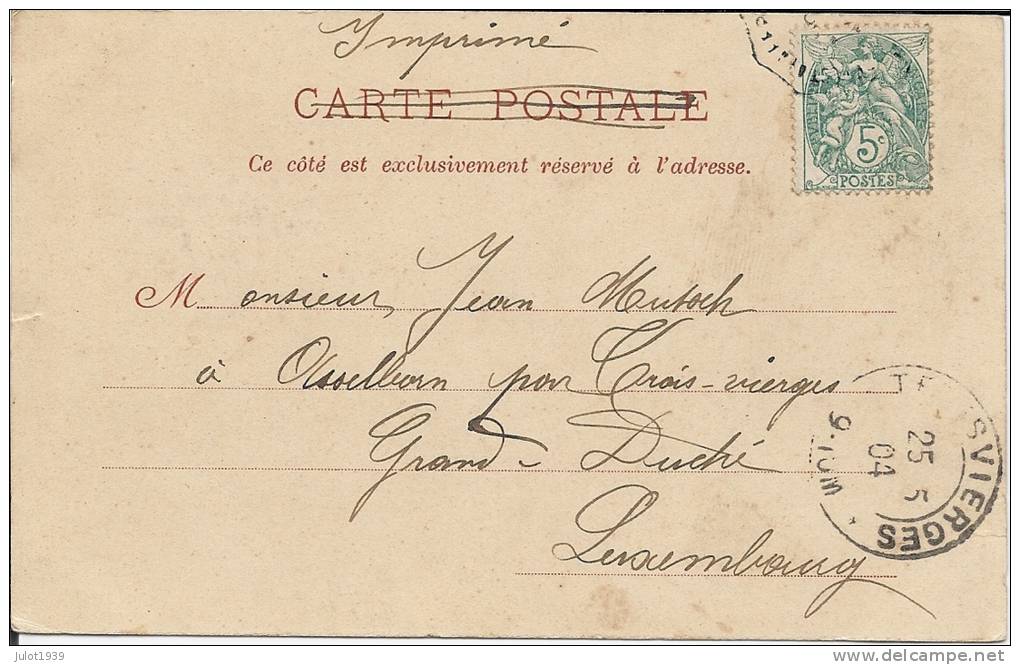 Imprimé
CARTE POSTALE
Ce côté est exclusivement réservé à l'adresse.
5c
POSTES
Monsieur, Jean Mutsch
à Asselborn par Trois-vierges
Grand-Duché
Luxembourg
SVIERGES
25 5
04
julot1939
www.delcampe.net